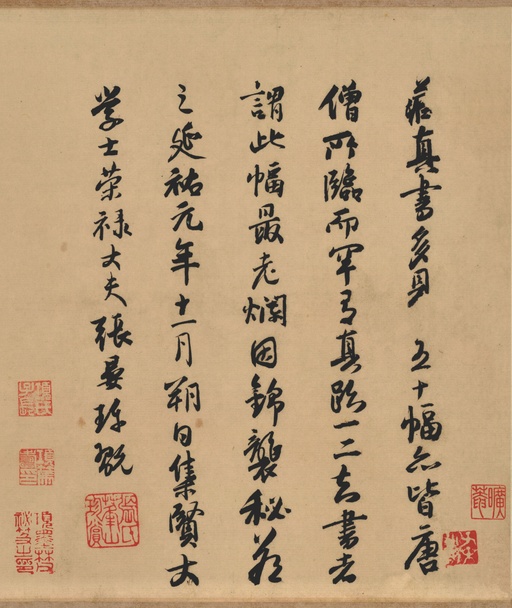 藏真書多見 五十幅亦皆唐
僧所臨而罕有真跡一二知書者
謂此幅最老爛因錦襲秘藏
之延祐元年十一月朔日集賢大
學士榮祿大夫張晏珍翫